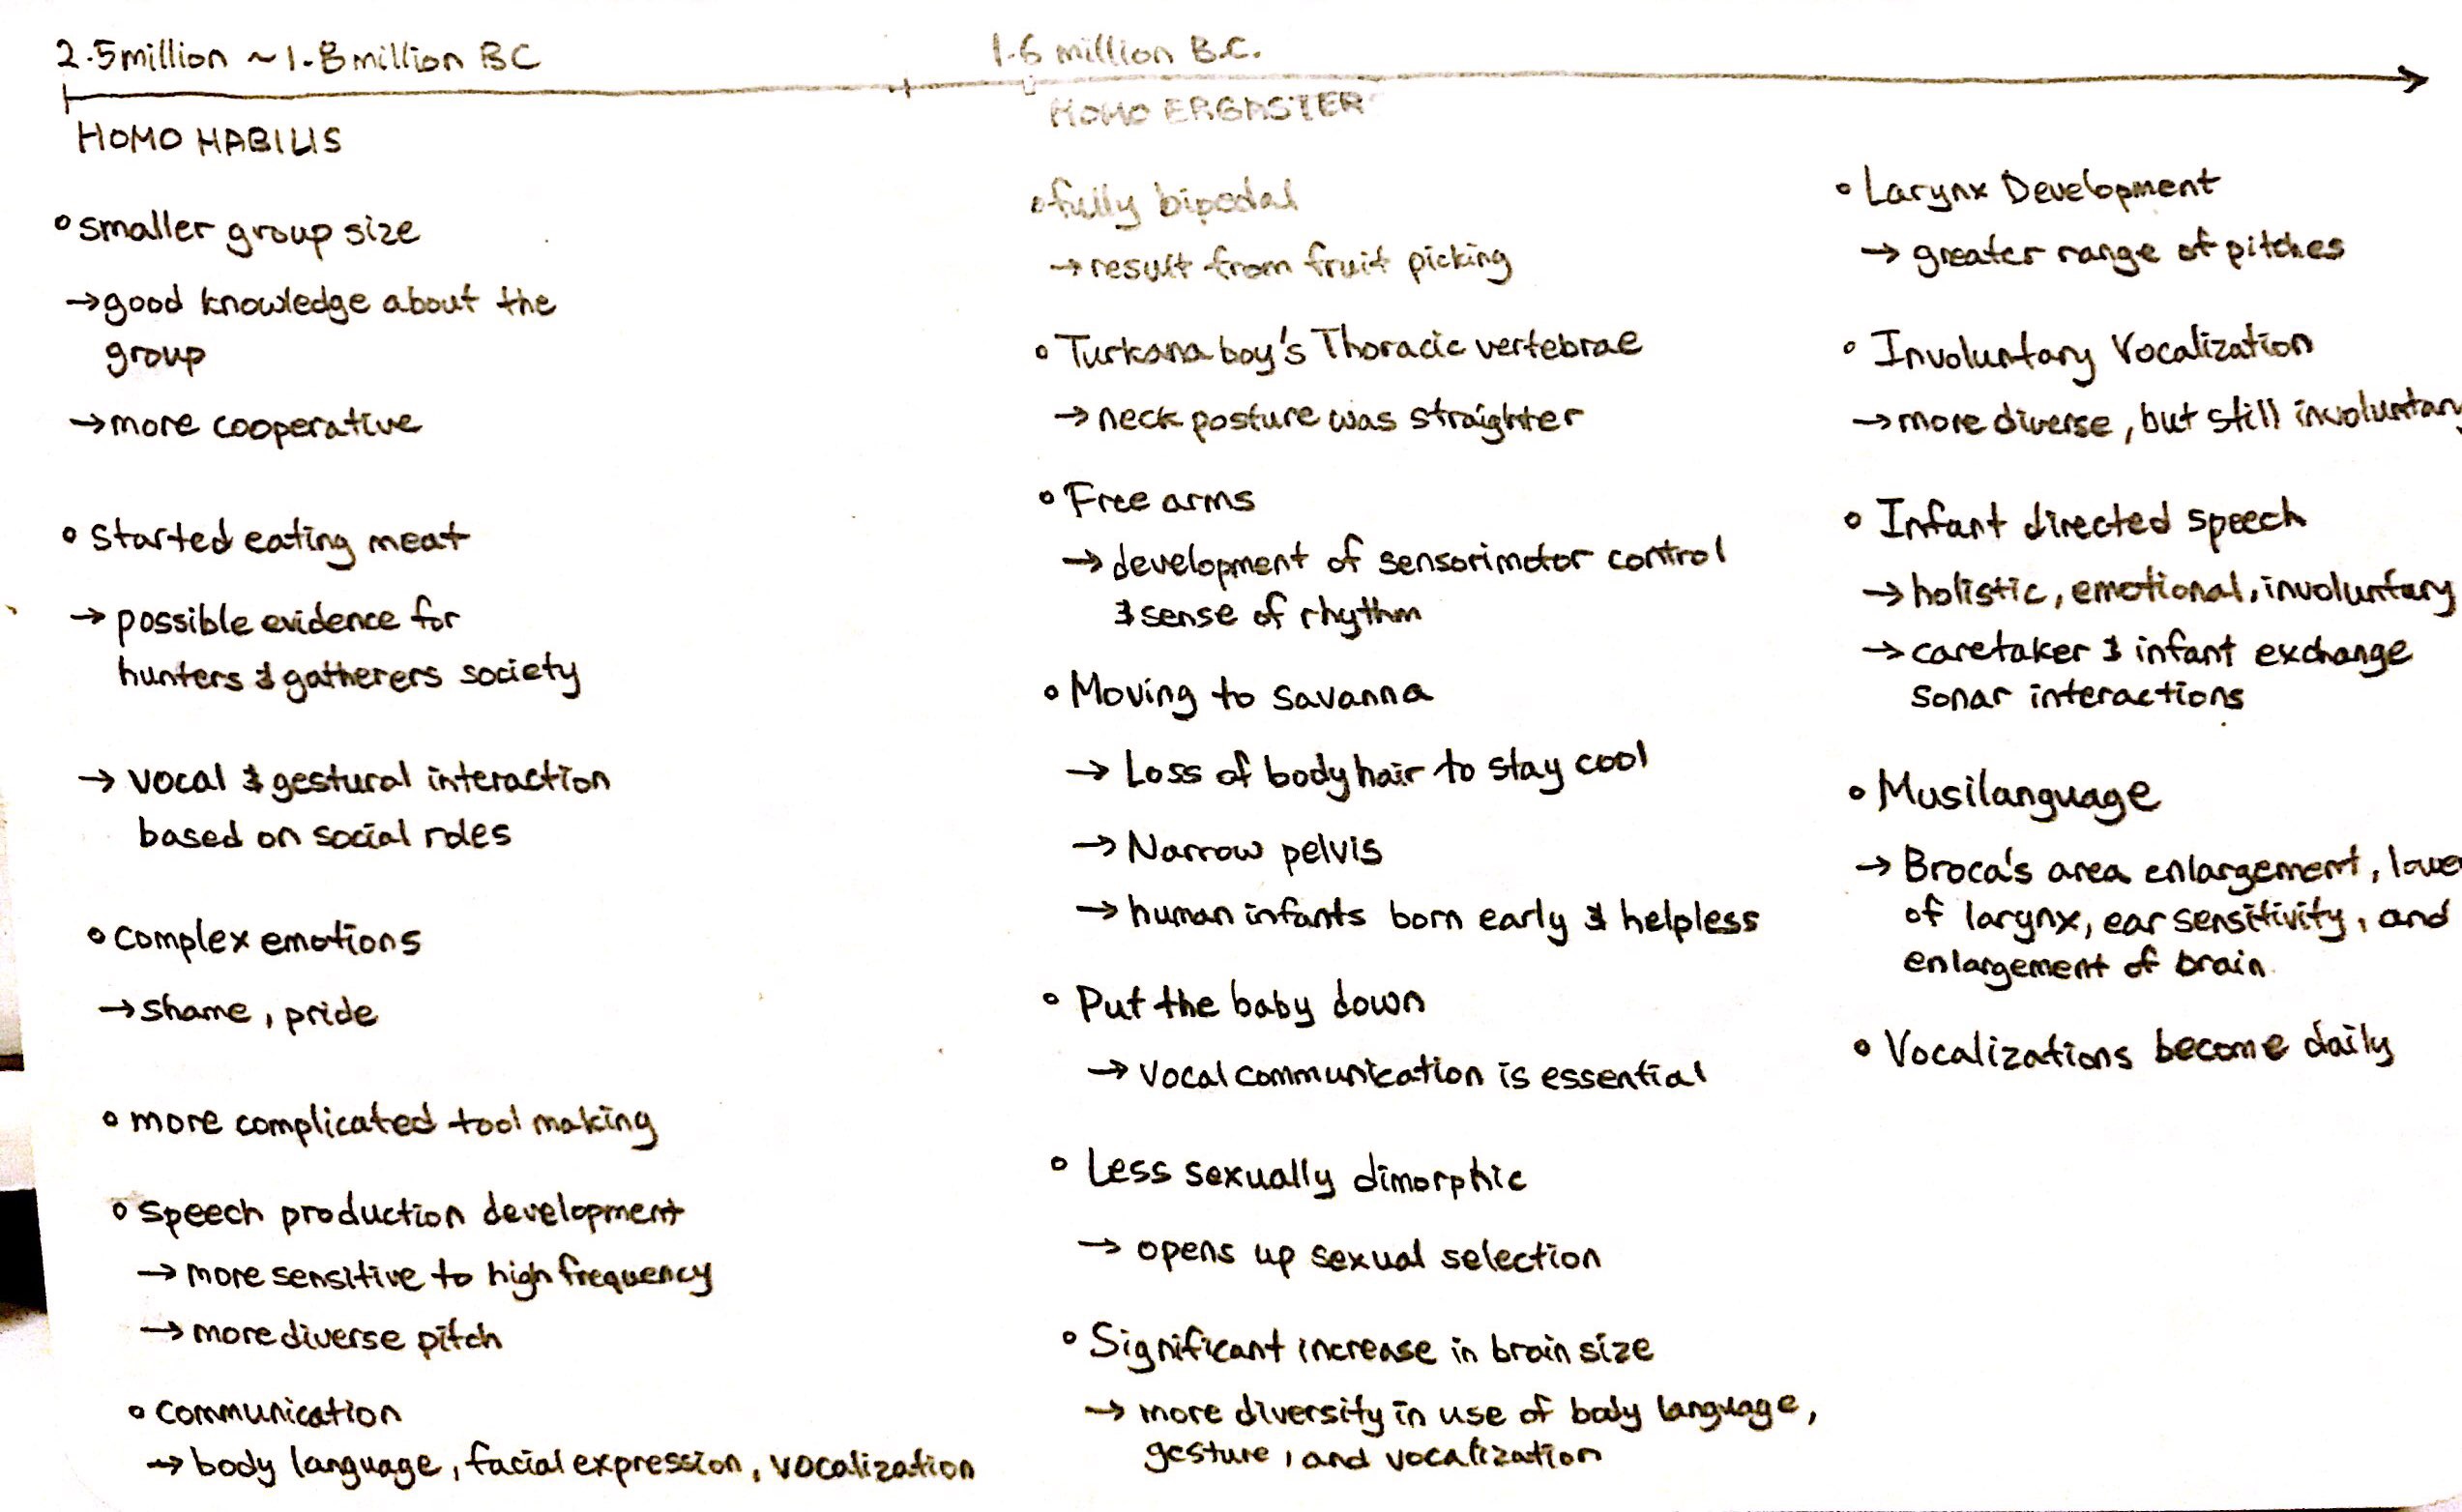 2.5million ~1.8million BC
1.6 million B.C.
HOMO HABILIS
∘ smaller group size
→ good knowledge about the
group
→ more cooperative
∘ started eating meat
→ possible evidence for
hunters & gatherers society
→ vocal & gestural interaction
based on social roles
∘ complex emotions
→ shame, pride
∘ more complicated tool making
∘ speech production development
→ more sensitive to high frequency
→ more diverse pitch
∘ communication
→ body language, facial expression, vocalization
HOMO ERGASTER
∘ fully bipedal
→ result from fruit picking
∘ Turkana boy's Thoracic vertebrae
→ neck posture was straighter
∘ Free arms
→ development of sensorimotor control
& sense of rhythm
∘ Moving to savanna
→ Loss of body hair to stay cool
→ Narrow pelvis
→ human infants born early & helpless
∘ Put the baby down
→ vocal communication is essential
∘ Less sexually dimorphic
→ opens up sexual selection
∘ Significant increase in brain size
→ more diversity in use of body language,
gesture, and vocalization
∘ Larynx Development
→ greater range of pitches
∘ Involuntary Vocalization
→ more diverse, but still involuntary
∘ Infant directed speech
→ holistic, emotional, involuntary
→ caretaker & infant exchange
sonar interactions
∘ Musilanguage
→ Broca's area enlargement, lowe
of larynx, ear sensitivity, and
enlargement of brain.
∘ Vocalizations become daily